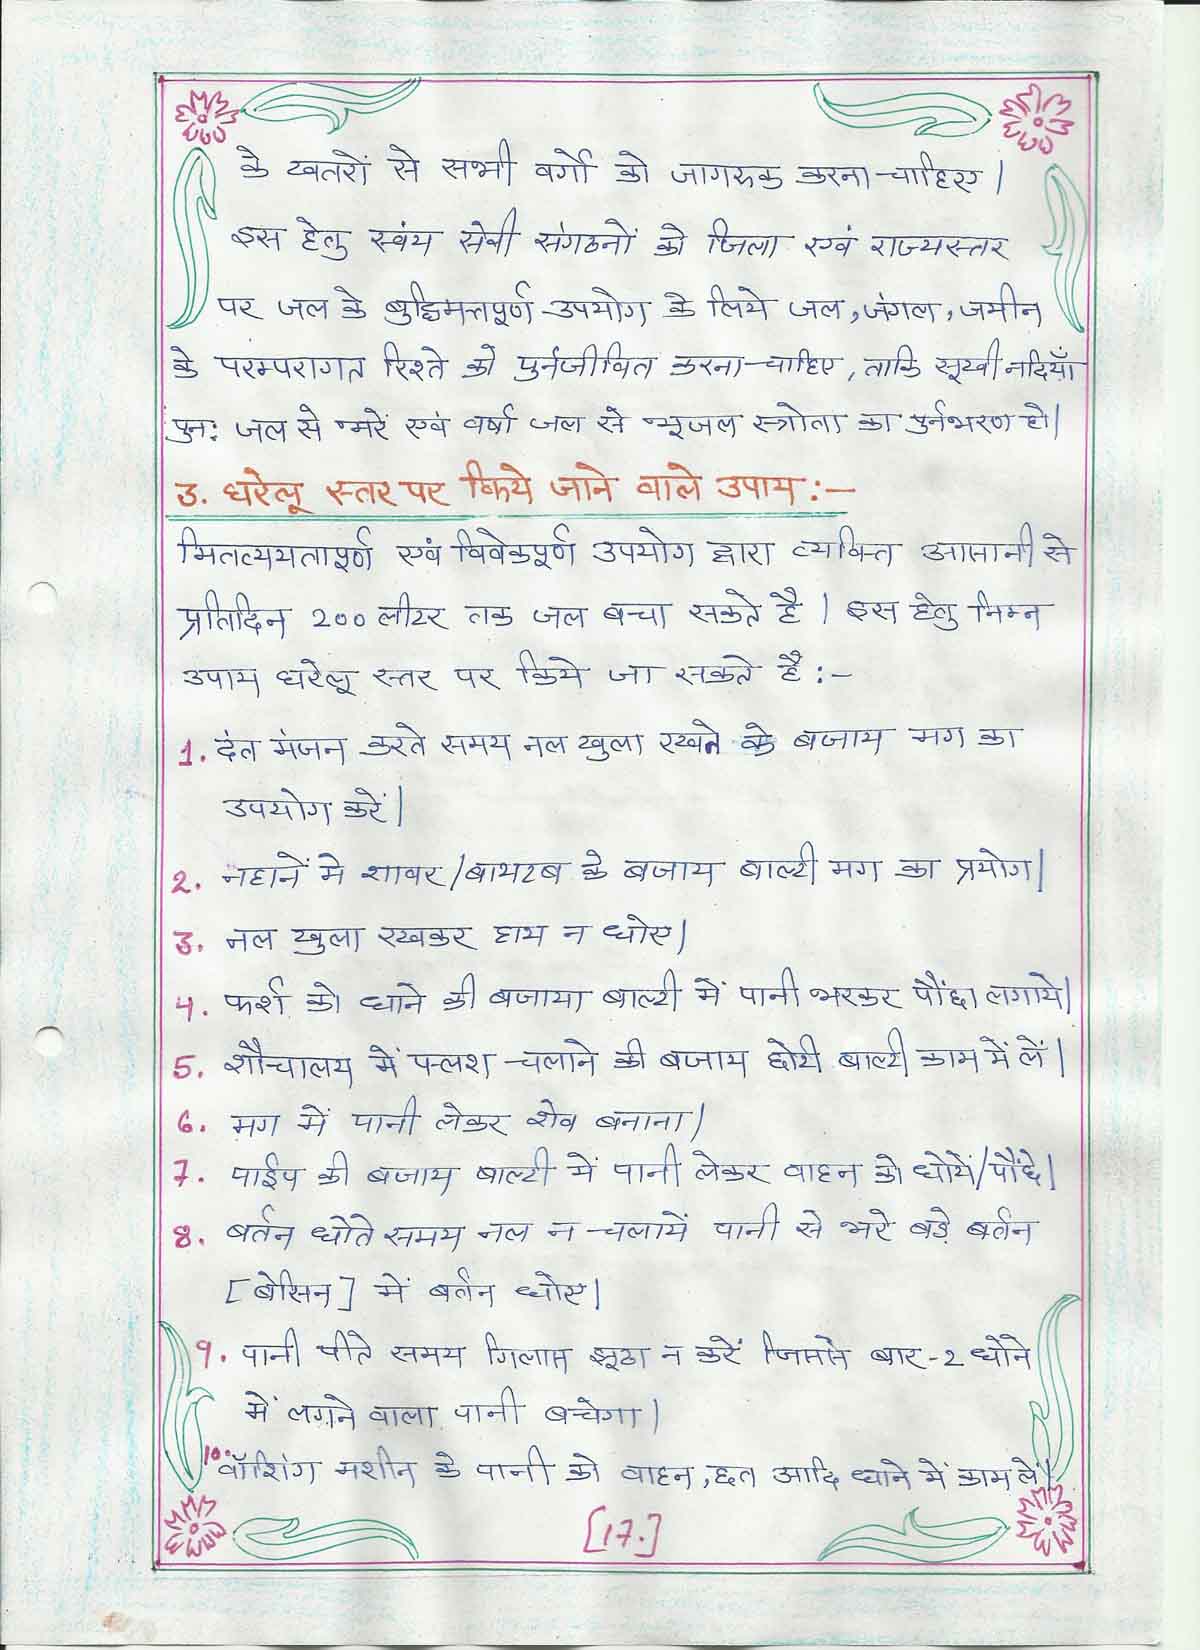 के खतरों से सभी वर्गों को जागरुक करना चाहिए।
इस हेतु स्वंय सेवी संगठनों को जिला एवं राज्यस्तर
पर जल के बुद्धिमत्तपूर्ण उपयोग के लिये जल, जंगल, जमीन
के परम्परागत रिश्ते को पुर्नजीवित करना चाहिए, ताकि सूखी नदियाँ
पुनः जल से भरें एवं वर्षा जल से भूजल स्त्रोता का पुर्नभरण हो।
3. घरेलू स्तर पर किये जाने वाले उपाय :-
मितव्ययतापूर्ण एवं विवेकपूर्ण उपयोग द्वारा व्यक्ति आसानी से
प्रतिदिन 200 लीटर तक जल बचा सकते है। इस हेतु निम्न
उपाय घरेलू स्तर पर किये जा सकते है :-
1. दंत मंजन करते समय नल खुला रखने के बजाय मग का
उपयोग करें।
2. नहानें मे शावर/बाथटब के बजाय बाल्टी मग का प्रयोग।
3. नल खुला रखकर हाथ न धोए।
4. फर्श को धोने की बजाया बाल्टी में पानी भरकर पौंछा लगाये।
5. शौचालय में फ्लश चलाने की बजाय छोटी बाल्टी काम में लें।
6. मग में पानी लेकर शेव बनाना।
7. पाईप की बजाय बाल्टी में पानी लेकर वाहन को धोयें/पौंछे।
8. बर्तन धोते समय नल न चलायें पानी से भरे बड़े बर्तन
[बेसिन] में बर्तन धोए।
9. पानी पीते समय गिलास झूठा न करें जिससे बार-2 धोने
में लगने वाला पानी बचेगा।
10. वॉशिंग मशीन के पानी को वाहन, छत आदि धोने में काम ले।
[17.]